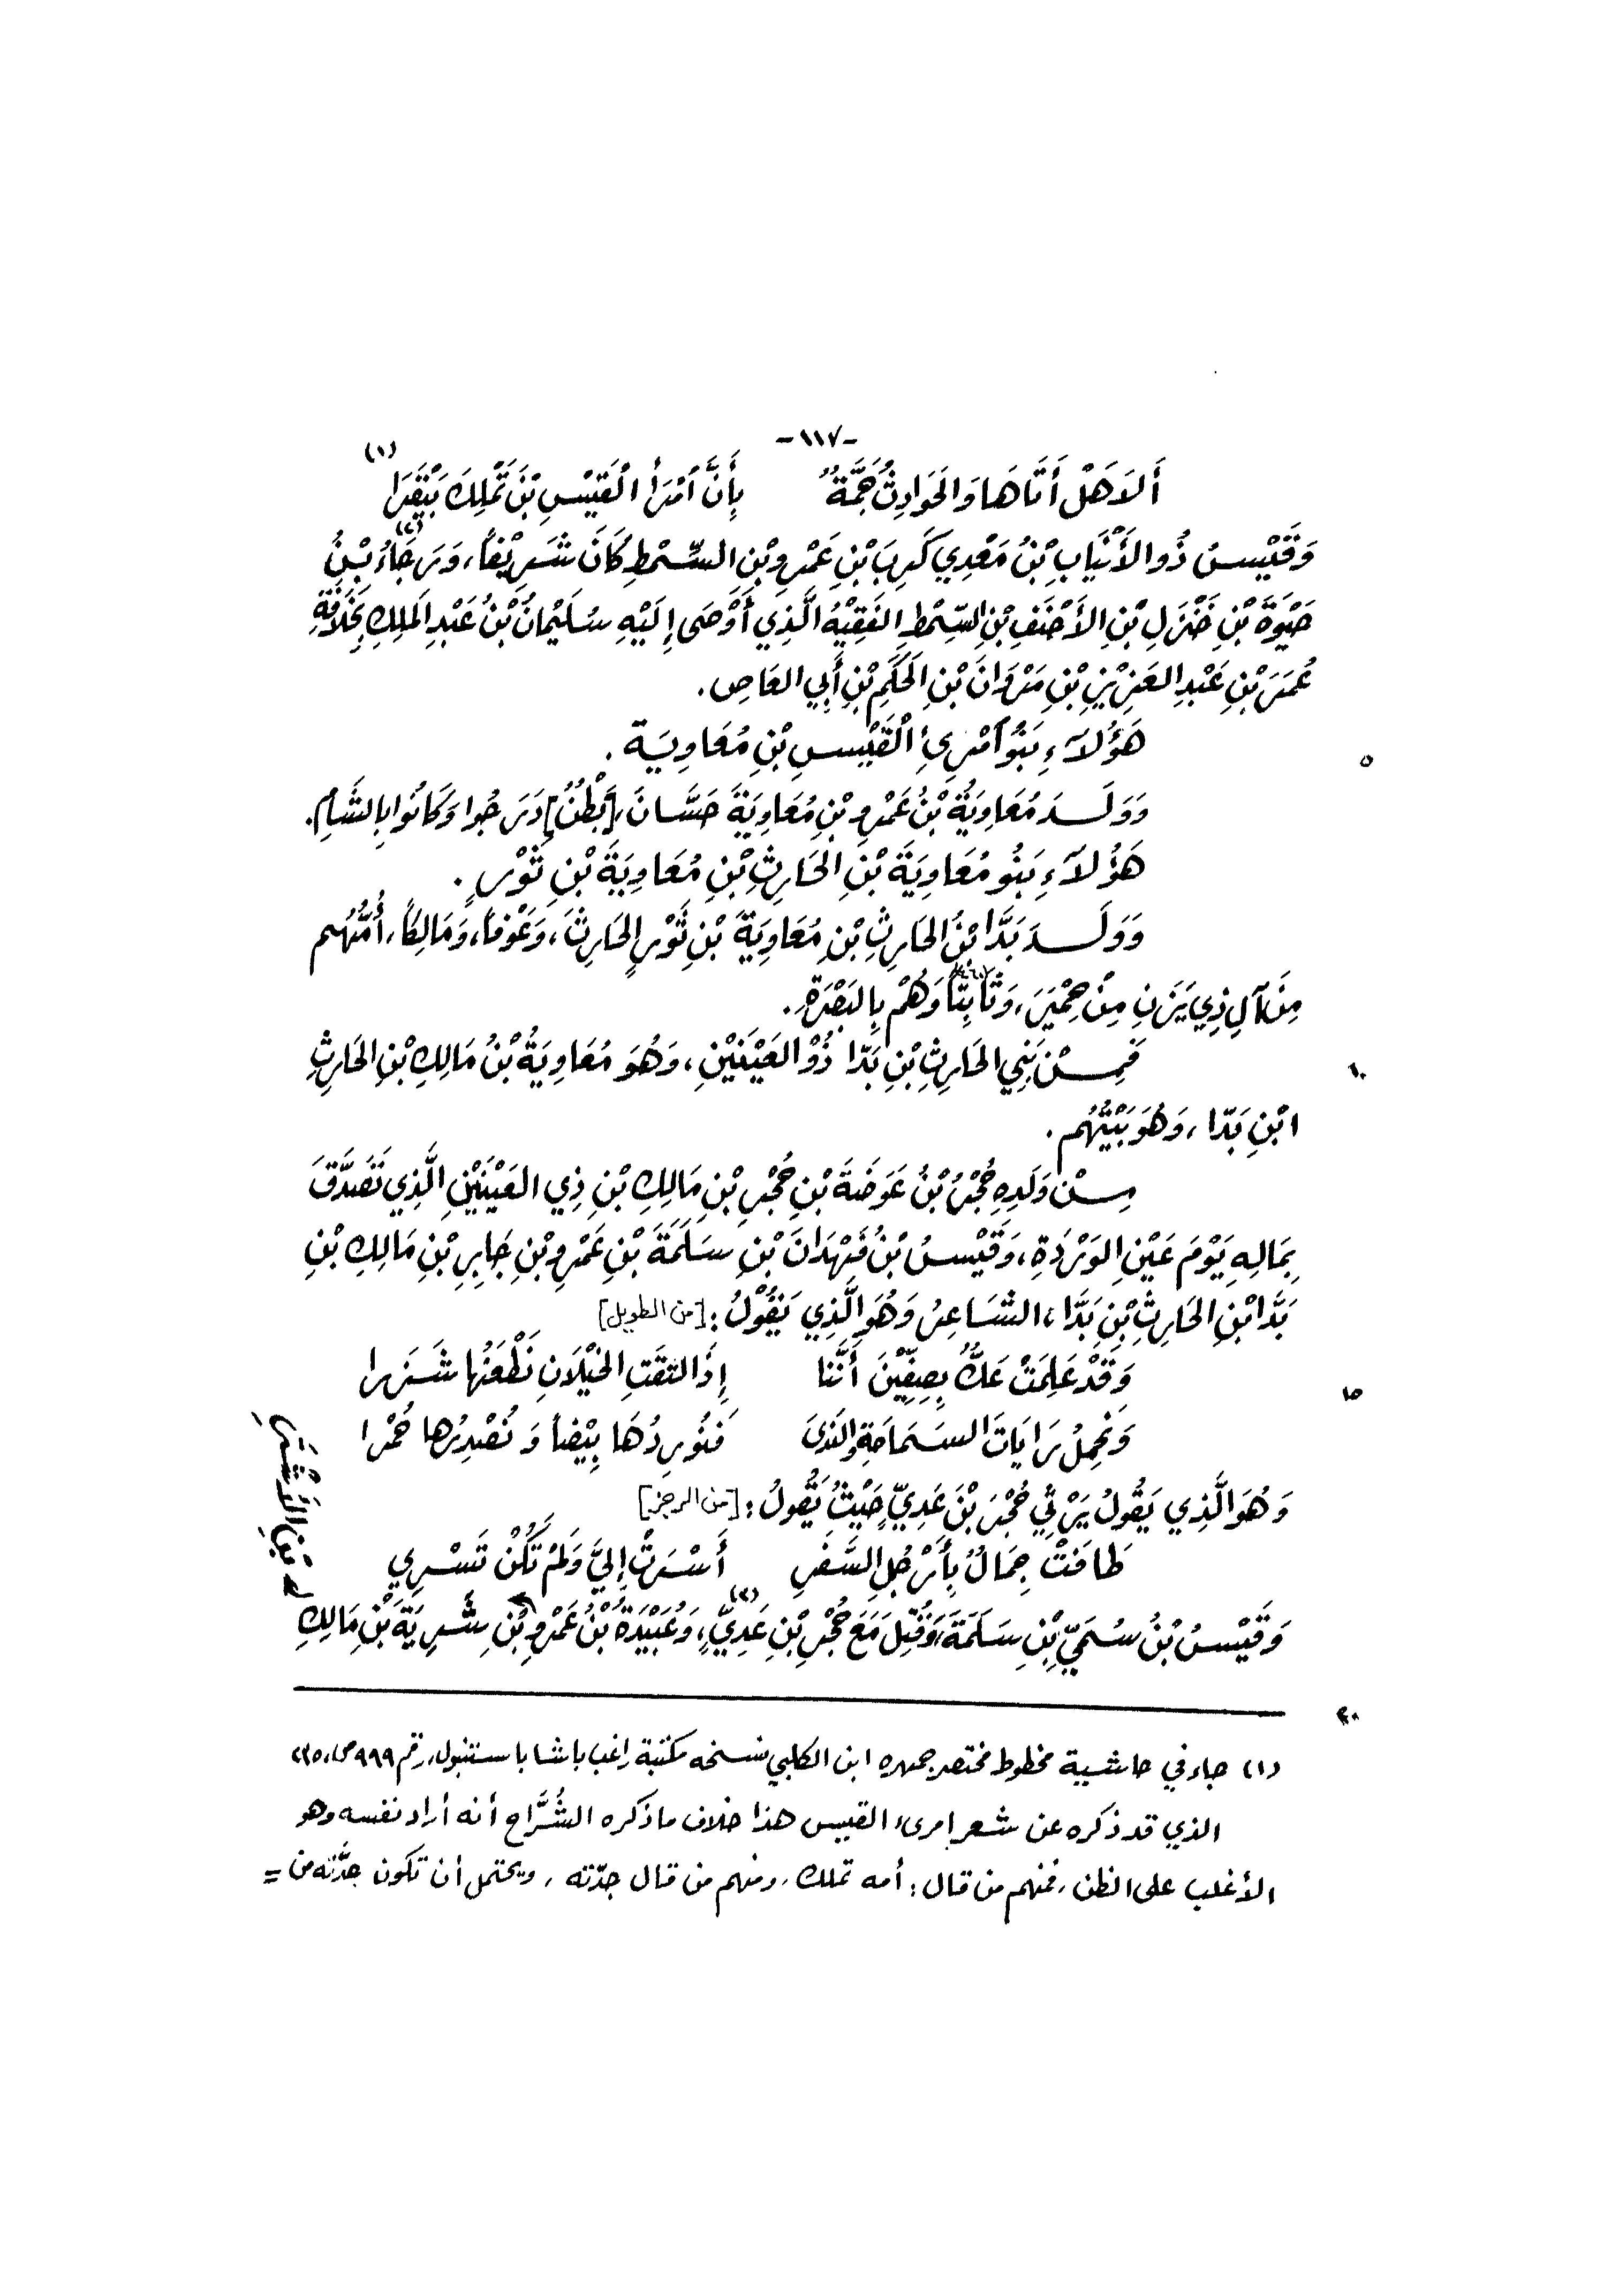 -١١٧-
أَلاَ هَلْ أَتَاهَا وَالحَوَادِثُ جَمَّةٌ بِأَنَّ امْرَأَ الْقَيْسِ بْنَ تَمْلِكَ بَيْقَرَا (١)
وَقَيْسُ ذُو الأَنْيَابِ بْنُ مَعْدِي كَرِبَ بْنِ عَمْرِو بْنِ السِّمْطِ كَانَ شَرِيْفاً، وَرَجَاءُ (٢) بْنُ
حَيْوَةَ بْنِ خَنْزَلِ بْنِ الأَحْنَفِ بْنِ السِّمْطِ الفَقِيْهُ الَّذِي أَوْصَى إِلَيْهِ سُلَيْمَانُ بْنُ عَبْدِ المَلِكِ بِخِلَافَةِ
عُمَرَ بْنِ عَبْدِ العَزِيْزِ بْنِ مَرْوَانَ بْنِ الحَكَمِ بْنِ أَبِي العَاصِ.
هَؤُلَاءِ بَنُو امْرِئِ الْقَيْسِ بْنِ مُعَاوِيَة. ٥
وَوَلَدَ مُعَاوِيَةُ بْنُ عَمْرِو بْنِ مُعَاوِيَةَ حَسَّانَ، [بَطْنٌ] دَرَجُوا وَكَانُوا بِالشَّأمِ.
هَؤُلَاءِ بَنُو مُعَاوِيَةَ بْنِ الحَارِثِ بْنِ مُعَاوِيَةَ بْنِ ثَوْرٍ.
وَوَلَدَ بَدَّا بْنُ الحَارِثِ بْنِ مُعَاوِيَةَ بْنِ ثَوْرٍ الحَارِثَ، وَعَوْفاً، وَمَالِكاً، أُمُّهُم
مِنْ آلِ ذِي يَزَنِ مِنْ حِمْيَرَ، وَثَابِتاً وَهُمْ بِالبَصْرَةِ.
فَمِنْ بَنِي الحَارِثِ بْنِ بَدّا ذُوْ العَيْنَيْنِ، وَهُوَ مُعَاوِيَةُ بْنُ مَالِكِ بْنِ الحَارِثِ ١٠
ابْنِ بَدّا، وَهُوَ بَيْتُهُم.
مِنْ وَلَدِهِ حُجْرُ بْنُ عَوَضَةَ بْنِ حُجْرِ بْنِ مَالِكِ بْنِ ذِي العَيْنَيْنِ الَّذِي تَصَدَّقَ
بِمَالِهِ يَوْمَ عَيْنِ الوَرْدَةِ، وَقَيْسُ بْنُ فَهْدَانَ بْنِ سَلَمَةَ بْنِ عَمْرِو بْنِ جَابِرِ بْنِ مَالِكِ بْنِ
بَدَّا بْنِ الحَارِثِ بْنِ بَدَّا، الشَّاعِرُ وَهُوَ الَّذِي يَقُوْلُ: [من الطويل]
وَقَدْ عَلِمَتْ عَكٌّ بِصِفِّيْنَ أَنَّنَا إِذَا التَقَتِ الخَيْلَانِ نَطْعَنُهَا شَزْرا ١٥
وَنَحْمِلُ رَايَاتَ السَّمَاحَةِ وَالنَدَى فَنُورِدُهَا بِيْضاً وَنُصْدِرُها حُمْرا
وَهُوَ الَّذِي يَقُولُ يَرْثِي حُجْرَ بْنَ عَدِيٍّ حَيْثُ يَقُولُ: [من الرجز]
طَافَتْ جِمَالٌ بِأَرْجُلِ السَّفَرِ أَسْرَتْ إِلَيَّ وَلَمْ تَكُنْ تَسْرِي
وَقَيْسُ بْنُ سُمَيِّ بْنِ سَلَمَةَ، وَقُتِلَ مَعَ حُجْرِ بْنِ عَدِيٍّ (٣)، وَعُبَيْدَةُ بْنُ عَمْرِو بْنِ شَرِيَةَ بْنِ مَالِكِ
٢٠
(١) جاء في حاشية مخطوط مختصر جمهرة ابن الكلبي نسخه مكتبة راغب باشا باستنبول، رقم ٩٩٩ ص،
الذي قد ذكره عن شعر امرىء القيس هذا خلاف ما ذكره الشُرَّاح أنه أراد نفسه وهو
الأغلب على الظن، فمنهم من قال: أمه تملك، ومنهم من قال جدّته، ويحتمل أن تكون جدَّته من =